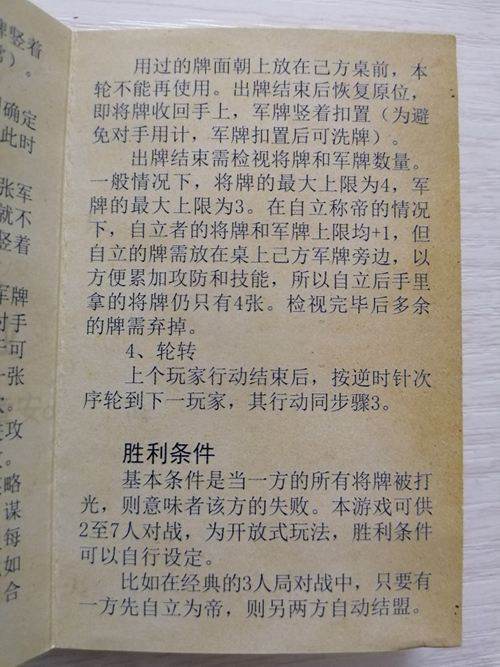 牌竖着
)。
确定
此时
张军
就不
竖着
军牌
对手
于可
一张
攻
略
谋
每
如
合
用过的牌面朝上放在己方桌前，本
轮不能再使用。出牌结束后恢复原位，
即将牌收回手上，军牌竖着扣置（为避
免对手用计，军牌扣置后可洗牌）。
出牌结束需检视将牌和军牌数量。
一般情况下，将牌的最大上限为4，军
牌的最大上限为3。在自立称帝的情况
下，自立者的将牌和军牌上限均+1，但
自立的牌需放在桌上己方军牌旁边，以
方便累加攻防和技能，所以自立后手里
拿的将牌仍只有4张。检视完毕后多余
的牌需弃掉。
4、轮转
上个玩家行动结束后，按逆时针次
序轮到下一玩家，其行动同步骤3。
胜利条件
基本条件是当一方的所有将牌被打
光，则意味者该方的失败。本游戏可供
2至7人对战，为开放式玩法，胜利条件
可以自行设定。
比如在经典的3人局对战中，只要有
一方先自立为帝，则另两方自动结盟。